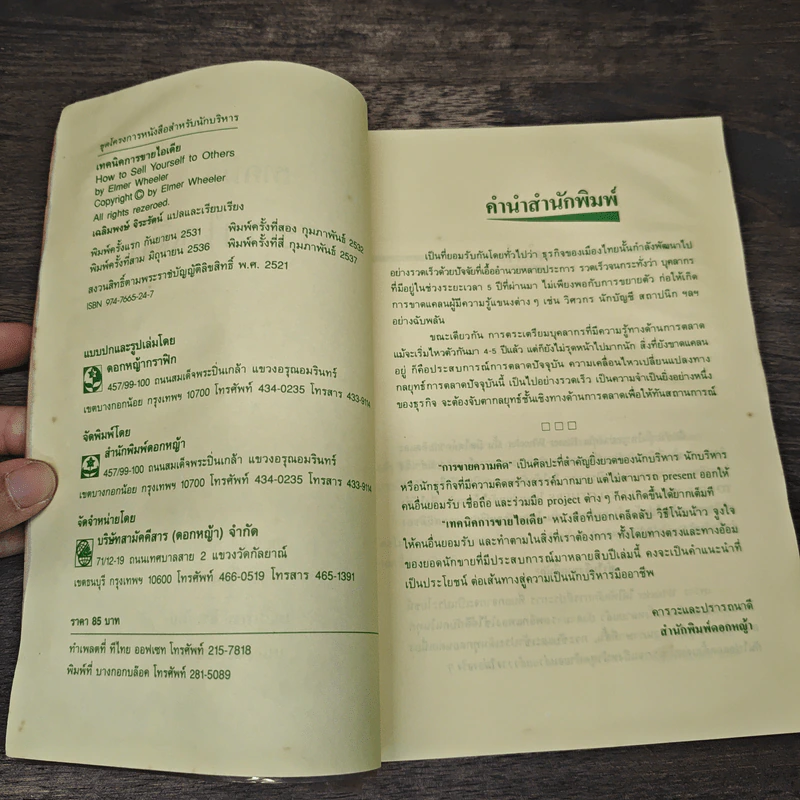 ชุดโครงการหนังสือสำหรับนักบริหาร
เทคนิดการขายไอเดีย
How to Sell Yourself to Others
by Elmer Wheeler
Copyright © by Elmer Wheeler
All rights rezeroed.
เฉลิมพงษ์ จิระรัตน์ แปลและเรียบเรียง
พิมพ์ครั้งแรก กันยายน 2531 พิมพ์ครั้งที่สอง กุมภาพันธ์ 2532
พิมพ์ครั้งที่สาม มิถุนายน 2536 พิมพ์ครั้งที่สี่ กุมภาพันธ์ 2537
สงวนสิทธิ์ตามพระราชบัญญัติลิขสิทธิ์ พ.ศ. 2521
ISBN 974-7665-24-7
แบบปกและรูปเล่มโดย
ดอกหญ้ากราฟิก
457/99-100 ถนนสมเด็จพระปิ่นเกล้า แขวงอรุณอมรินทร์
เขตบางกอกน้อย กรุงเทพฯ 10700 โทรศัพท์ 434-0235 โทรสาร 433-9114
จัดพิมพ์โดย
สำนักพิมพ์ดอกหญ้า
457/99-100 ถนนสมเด็จพระปิ่นเกล้า แขวงอรุณอมรินทร์
เขตบางกอกน้อย กรุงเทพฯ 10700 โทรศัพท์ 434-0235 โทรสาร 433-9114
จัดจำหน่ายโดย
บริษัทสามัคคีสาร (ดอกหญ้า) จำกัด
71/12-19 ถนนเทศบาลสาย 2 แขวงวัดกัลยาณ์
เขตธนบุรี กรุงเทพฯ 10600 โทรศัพท์ 466-0519 โทรสาร 465-1391
ราคา 85 บาท
ทำเพลตที่ ทีไทย ออฟเซท โทรศัพท์ 215-7818
พิมพ์ที่ บางกอกบล็อค โทรศัพท์ 281-5089
คำนำสำนักพิมพ์
เป็นที่ยอมรับกันโดยทั่วไปว่า ธุรกิจของเมืองไทยนั้นกำลังพัฒนาไป
อย่างรวดเร็วด้วยปัจจัยที่เอื้ออำนวยหลายประการ รวดเร็วจนกระทั่งว่า บุคลากร
ที่มีอยู่ในช่วงระยะเวลา 5 ปีที่ผ่านมา ไม่เพียงพอกับการขยายตัว ก่อให้เกิด
การขาดแคลนผู้มีความรู้แขนงต่าง ๆ เช่น วิศวกร นักบัญชี สถาปนิก ฯลฯ
อย่างฉับพลัน
ขณะเดียวกัน การตระเตรียมบุคลากรที่มีความรู้ทางด้านการตลาด
แม้จะเริ่มไหวตัวกันมา 4-5 ปีแล้ว แต่ก็ยังไม่รุดหน้าไปมากนัก สิ่งที่ยังขาดแคลน
อยู่ ก็คือประสบการณ์การตลาดปัจจุบัน ความเคลื่อนไหวเปลี่ยนแปลงทาง
กลยุทธ์การตลาดปัจจุบันนี้ เป็นไปอย่างรวดเร็ว เป็นความจำเป็นยิ่งอย่างหนึ่ง
ของธุรกิจ จะต้องจับตากลยุทธ์ชั้นเชิงทางด้านการตลาดเพื่อให้ทันสถานการณ์
"การขายความคิด" เป็นศิลปะที่สำคัญยิ่งยวดของนักบริหาร นักบริหาร
หรือนักธุรกิจที่มีความคิดสร้างสรรค์มากมาย แต่ไม่สามารถ present ออกให้
คนอื่นยอมรับ เชื่อถือ และร่วมมือ project ต่าง ๆ ก็คงเกิดขึ้นได้ยากเต็มที
"เทคนิคการขายไอเดีย" หนังสือที่บอกเคล็ดลับ วิธีโน้มน้าว จูงใจ
ให้คนอื่นยอมรับ และทำตามในสิ่งที่เราต้องการ ทั้งโดยทางตรงและทางอ้อม
ของยอดนักขายที่มีประสบการณ์มาหลายสิบปีเล่มนี้ คงจะเป็นคำแนะนำที่
เป็นประโยชน์ ต่อเส้นทางสู่ความเป็นนักบริหารมืออาชีพ
คารวะและปรารถนาดี
สำนักพิมพ์ดอกหญ้า